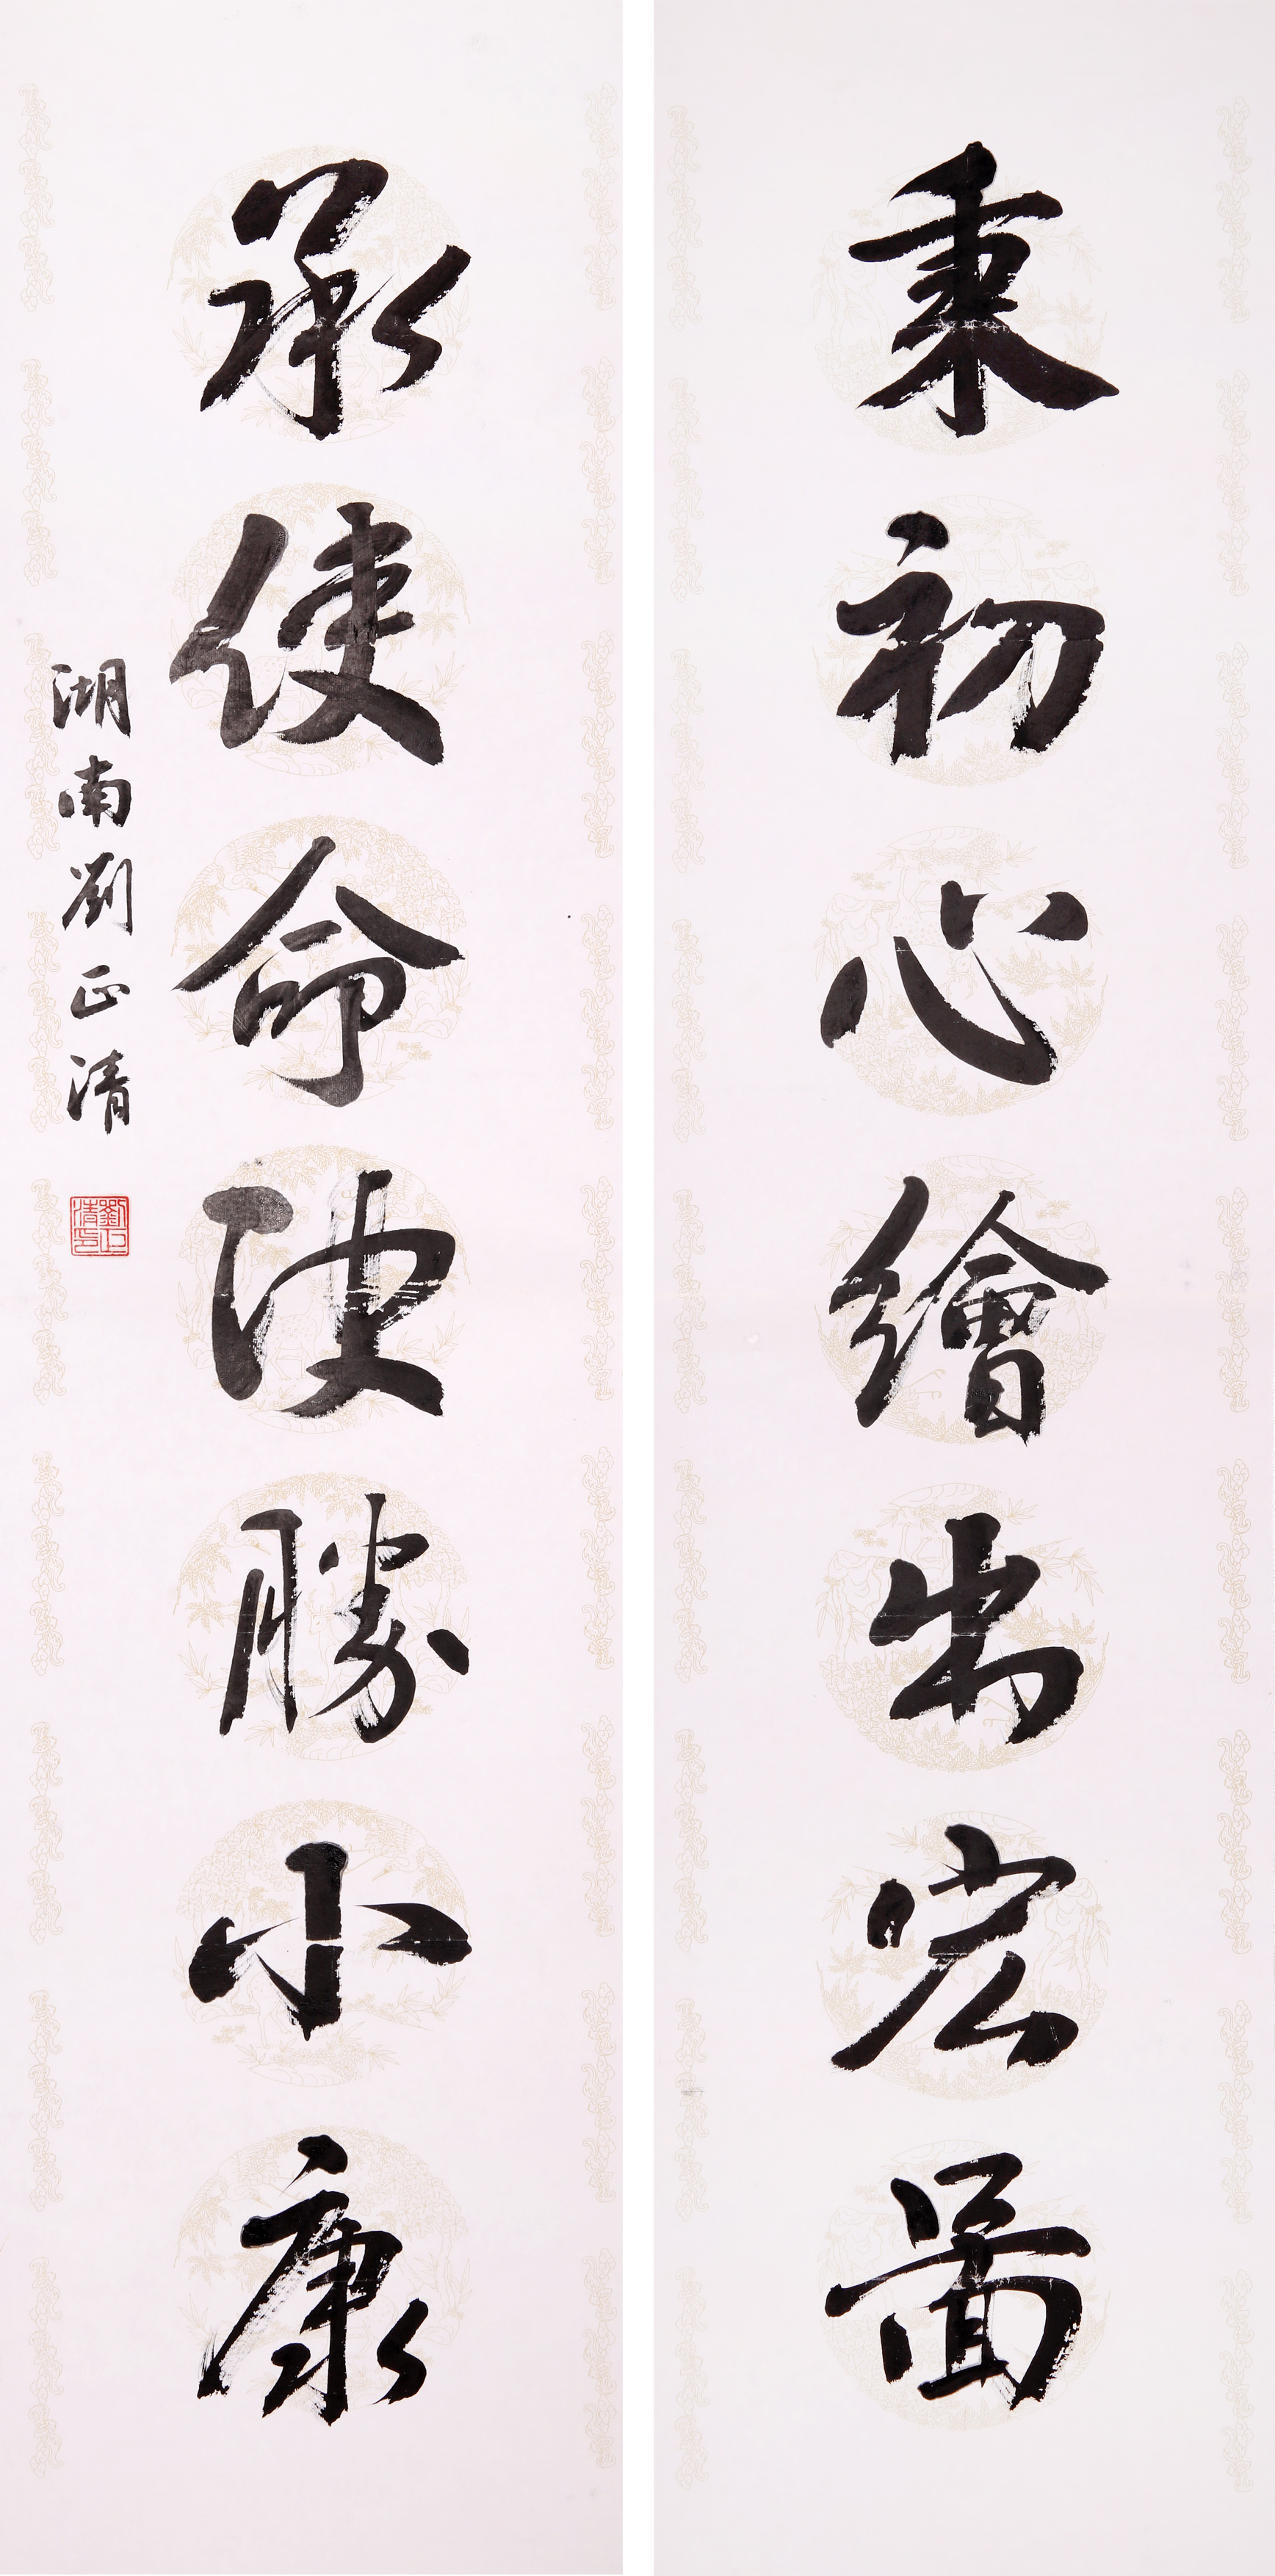 秉初心繪出宏啚
承使命决勝小康
湖南劉正清
劉正清印